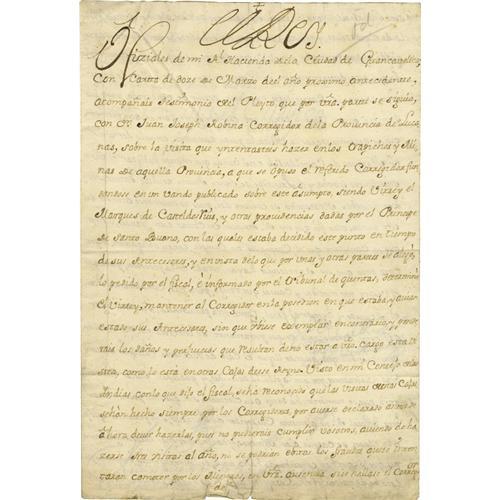 El Rey.
Ofiziales de mi Rl Hacienda de la Ciudad de Guancavelica
Con Carta de doze de Marzo del año proximo antecedente,
acompañais testimonio del Pleyto que por vra. parte se siguio,
con Dn Juan Joseph Robina Corregidor de la Provincia de Luca
nas, sobre la visita que yntentasteis hazer en los trapiches y Mi
nas de aquella Provincia, a que se opuso el referido Corregidor fun
dandose en un vando publicado sobre este asumpto, siendo Virrey el
Marques de Casteldosrius, y otras providencias dadas por el Principe
de Santo Buono, con las quales estaba decidido este punto en tiempo
de sus Antecesores, y en vista de lo que por unas y otras partes se alegó,
lo pedido por el fiscal, é informado por el tribunal de quentas, determinó
el Virrey, mantener al Corregidor en la posesion en que estaba, y avian
estado sus Antecesores, sin que ubiese exemplar en contrario, y
los daños y perjuicios que resultan de no estar a vro. cargo esta vi
sita, como lo está en otras Casas de ese Reyno. Visto en mi Consejo de las
Indias, con lo que dijo el fiscal, se ha reconocido que las visitas de estas Casas
se han hecho siempre por los Corregidores, por averse declarado antes de
ahora devér hazerlas, pues no pudierais cumplir vosotros, aviendo de ha
zerse siete visitas al año, no se podrian obiar los fraudes que
taran cometer por los Mineros, en vra. ausencia si se hallase el Corregor
de